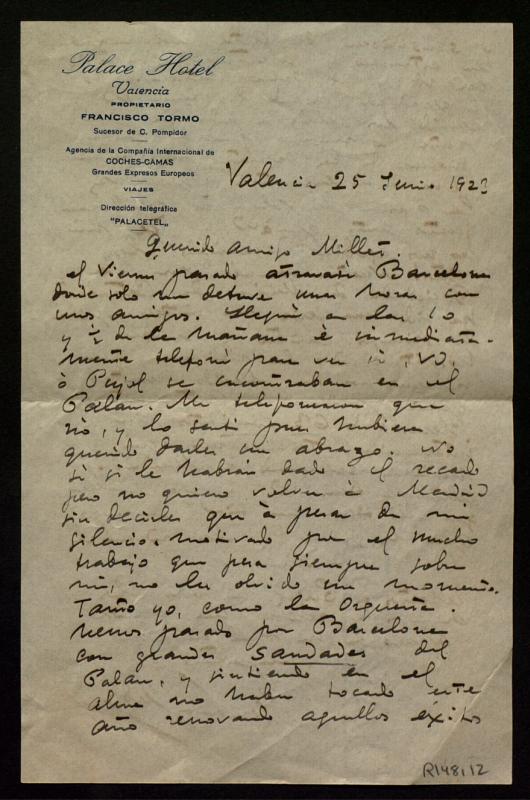 Palace Hotel
Valencia
PROPIETARIO
FRANCISCO TORMO
Sucesor de C. Pompidor
Agencia de la Compañía Internacional de
COCHES-CAMAS
Grandes Expresos Europeos
VIAJES
Dirección telegráfica
"PALACETEL„
Valencia 25 Junio 1923
Querido amigo Millet,
el Viernes pasado atravesé Barcelona
donde solo me detuve unas horas con
unos amigos. Llegué a las 10
y ½ de la mañana é inmediata-
mente telefoné para ver si VD.
ó Pujol se encontraban en el
Palau. Me telefonearon que
no, y lo sentí pues hubiera
querido darles un abrazo. No
sé si le habrán dado el recado
pero no quiero volver à Madrid
sin decirles que à pesar de mi
silencio, motivado por el mucho
trabajo que pesa siempre sobre
mí, no les olvido un momento.
Tanto yo, como la Orquesta.
hemos pasado por Barcelona
con grandes saudades del
Palau, y sintiendo en el
alma no haber tocado este
año renovando aquellos éxitos
R148,12